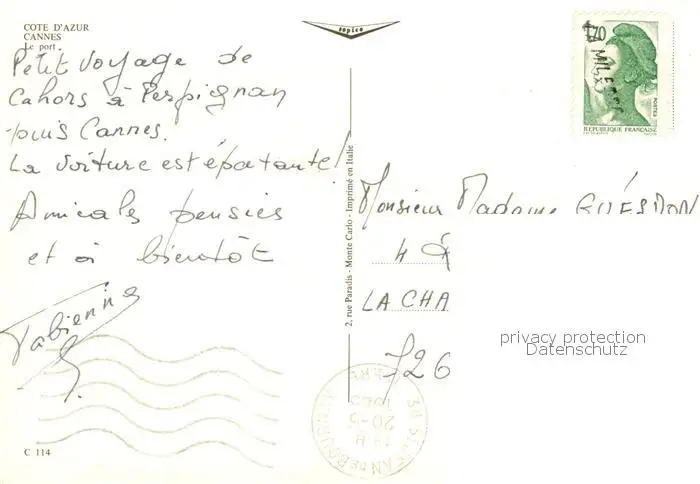 COTE D'AZUR
CANNES
Le port
Petit voyage de
Cahors à Perpignan
puis Cannes.
La voiture est épatante!
Amicales pensées
et à bientôt
Fabienne
C 114
topico
2, rue Paradis - Monte Carlo - Imprimé en Italie
1,70
POSTES
REPUBLIQUE FRANÇAISE
Monsieur Madame GUÉSDON
4
LA CHA
726
privacy protection
Datenschutz
38 ST JEAN DE BOURNAY
20-5
ISERE